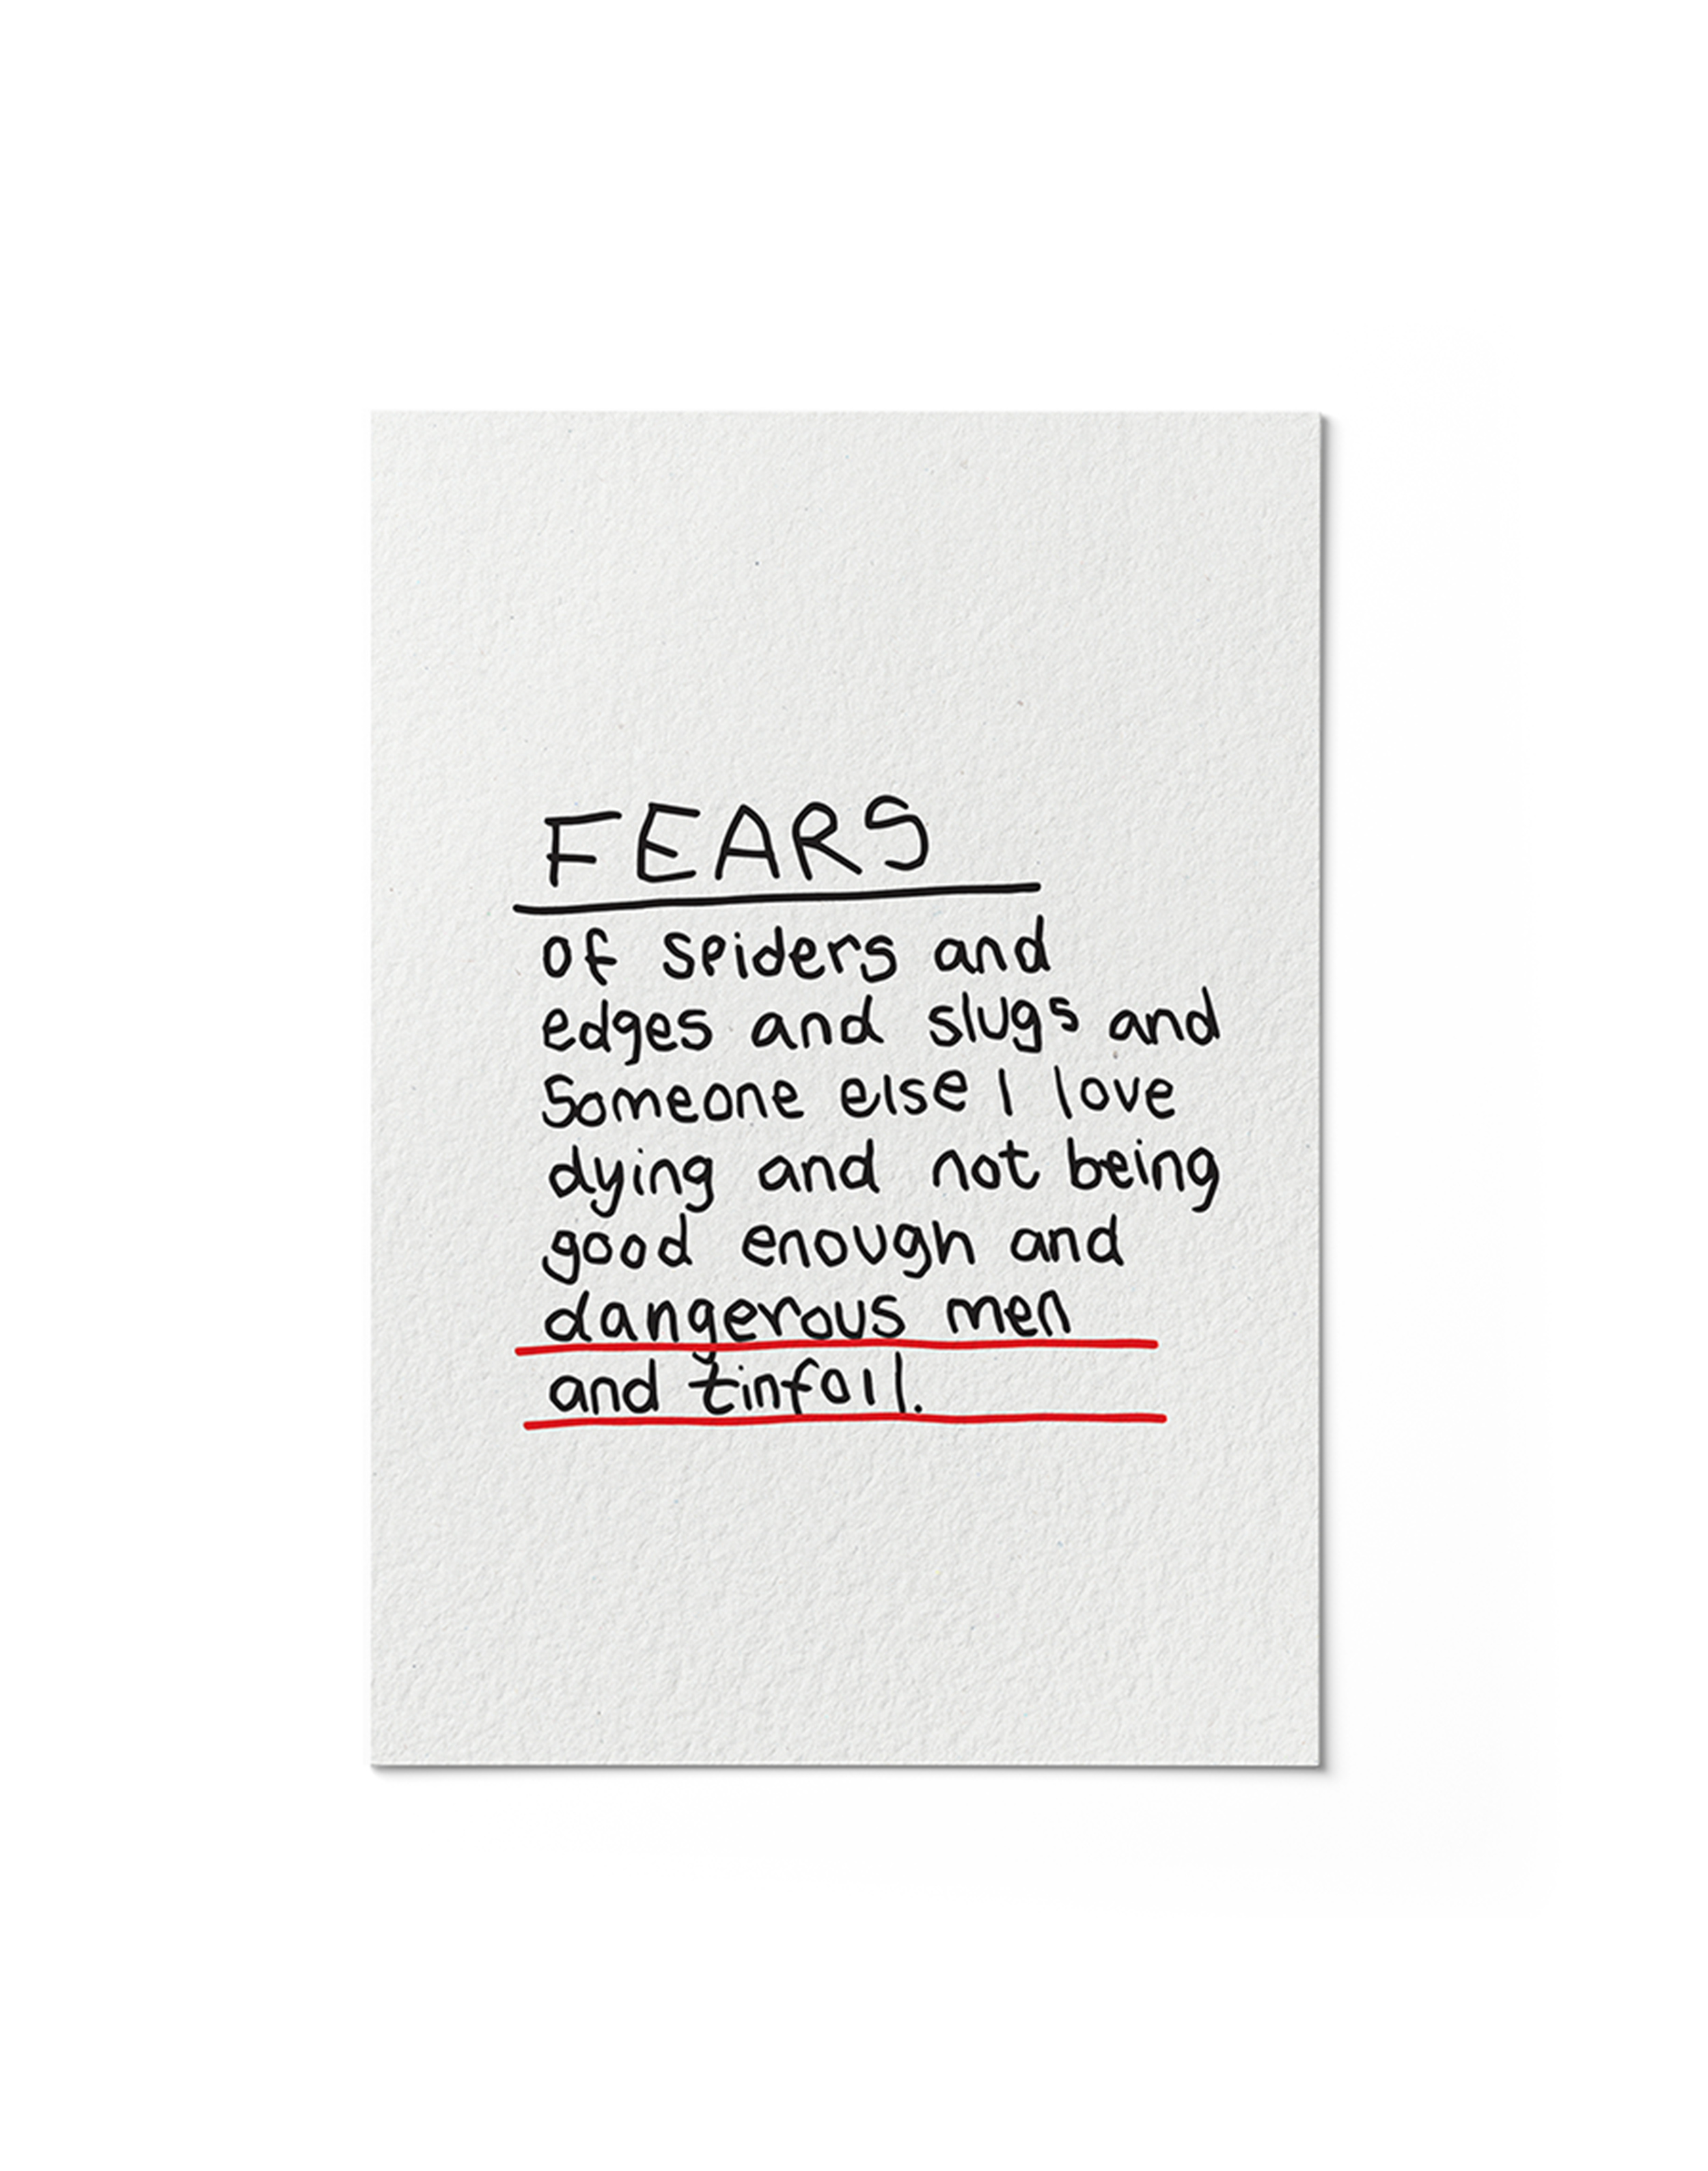 FEARS
of spiders and
edges and slugs and
Someone else I love
dying and not being
good enough and
dangerous men
and tinfoil.